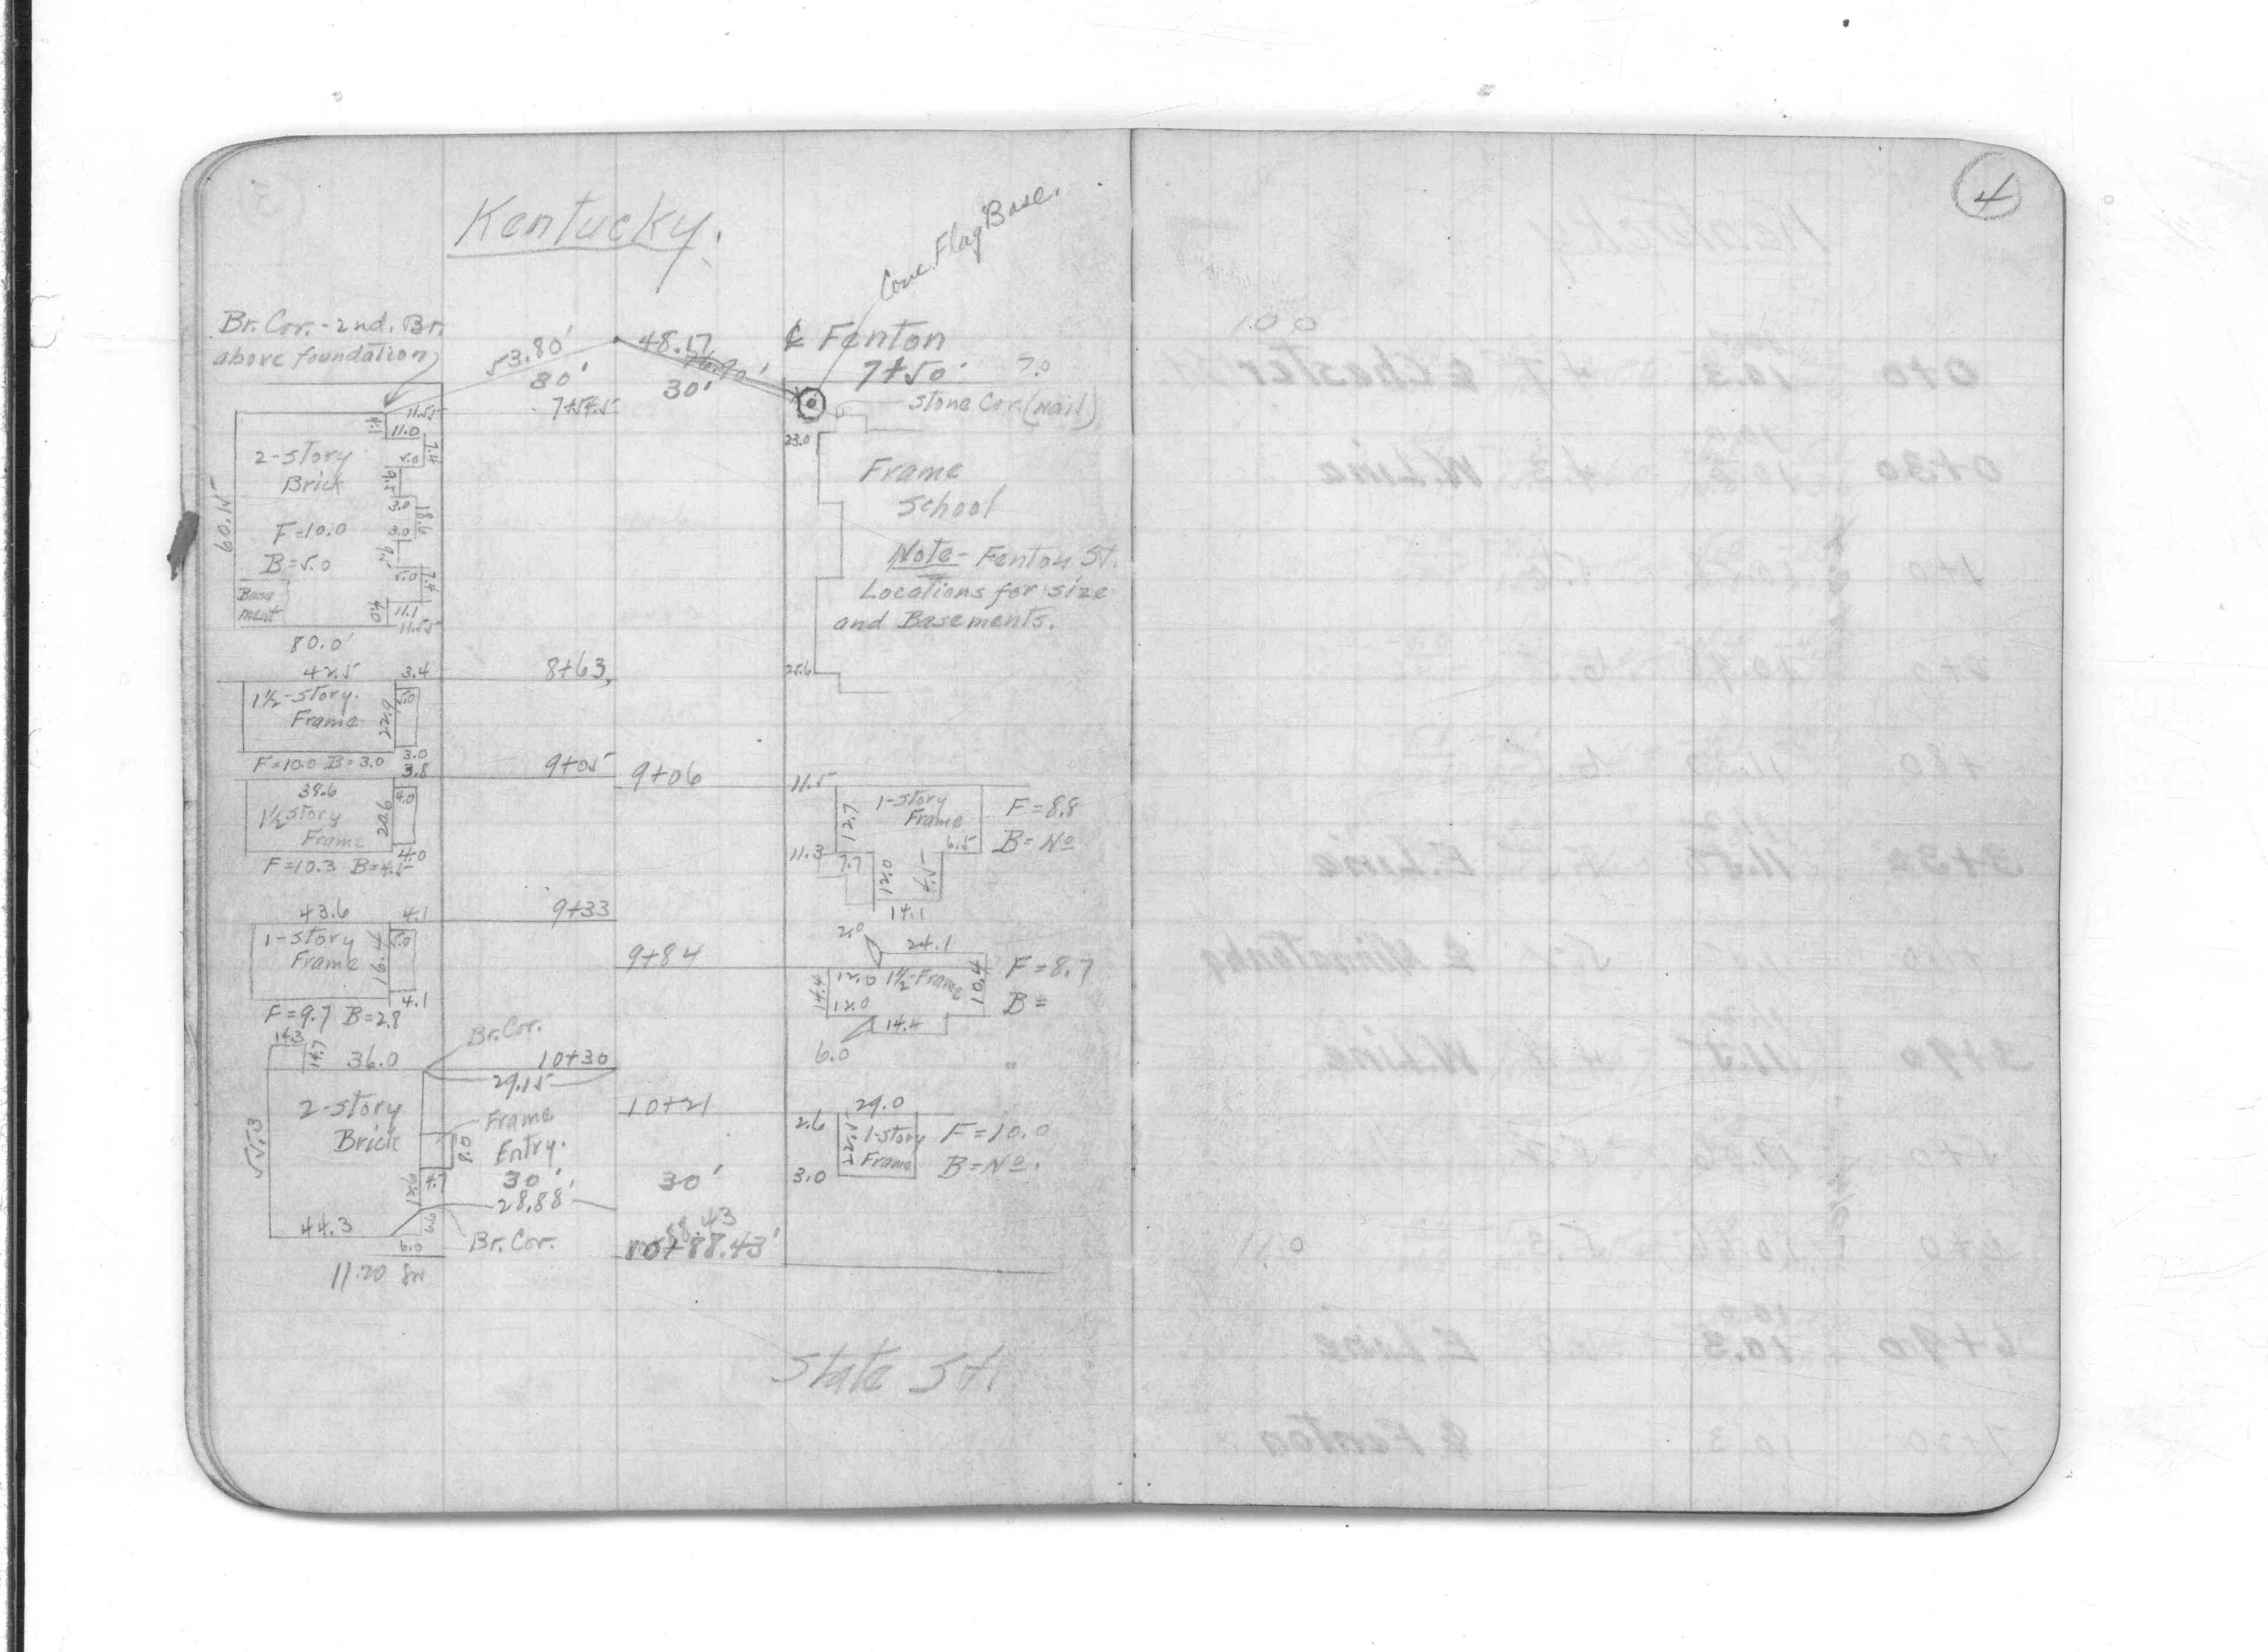 4
Kentucky.
Conc. Flag Base.
Br. Cor. - 2nd. Br.
above foundation
53.80'
30'
7+54.5
48.17
76.90'
30'
℄ Fenton
7+50
7.0
Stone Cor. (Nail)
11.55
4.1
11.0
7.4
5.0
9.5
3.0
18.6
3.0
9.5
5.0
7.4
4.0
11.1
11.55
2-story
Brick
F=10.0
B=5.0
Base
ment
60.15
80.0'
23.0
Frame
School
Note - Fenton St.
Locations for size
and Basements.
25.6
42.5
3.4
8+63
1½-story.
Frame
22.9
5.0
F=10.0 B=3.0
3.0
3.8
9+05
9+06
38.6
4.0
1½ story
Frame
20.6
4.0
F=10.3 B=4.5
11.5
1-story
Frame
12.7
F=8.8
B=No
6.5
11.3
7.7
12.0
4.5
14.1
43.6
4.1
9+33
1-story
Frame
19.4
5.0
4.1
F=9.7 B=2.8
9+84
2.0
24.1
14.4
12.0
1½-Frame
10.4
12.0
14.4
6.0
F=8.7
B=
14.3
14.7
36.0
Br. Cor.
10+30
29.15
2-story
Brick
55.3
Frame
Entry.
8.0
4.7
30'
28.88'
44.3
6.0
Br. Cor.
11.20
10+21
30'
88.43
10+88.43'
29.0
2.6
1-story
Frame
3.0
F=10.0
B=No.
State St.